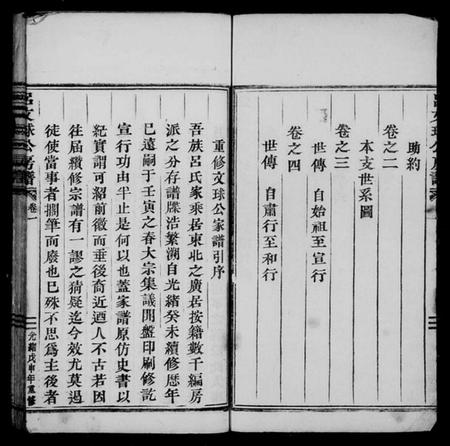 助約
卷之二
本支世系圖
卷之三
世傳 自始祖至宣行
卷之四
世傳 自肅行至和行
重修文球公家譜引序
吾族呂氏家乘居東北之廣居按籍數千編房
派之分存譜牒浩繁溯自光緒癸未續修歷年
已遠嗣于壬寅之春大宗集議開盤印刷修訖
宣行功由半止是何以也蓋家譜原仿史書以
紀實謂可紹前徽而垂後裔近遒人不古若因
往屆續修宗譜有一謬之猜疑迄今效尤莫過
徒使當事者擱筆而廢也已殊不思爲主後者
呂文球公房譜
卷一
光緒戊申年重修